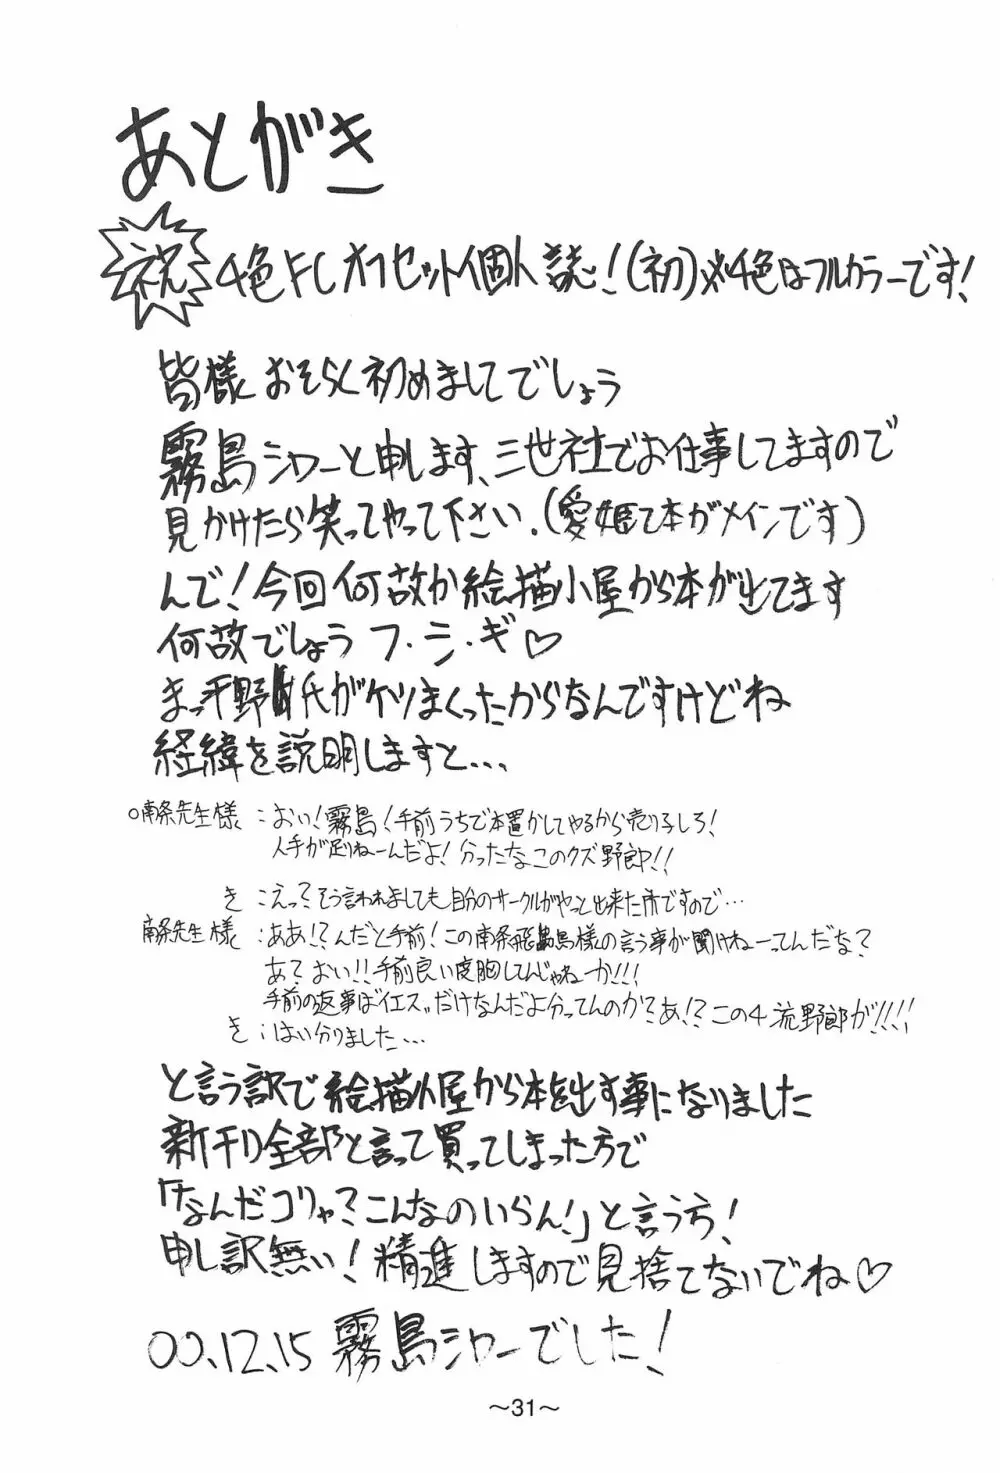 あとがき
祝 4色FCオフセット個人誌!(初)※4色はフルカラーです!
皆様おそらく初めましてでしょう
霧島シャーと申します、三世社でお仕事してますので
見かけたら笑ってやって下さい.(愛姫て本がメインです)
んで!今回何故か絵描小屋から本が出てます
何故でしょうフ・シ・ギ♡
まっ平野氏がケツまくったからなんですけどね
経緯を説明しますと...
○南条先生様:おい!霧島!手前うちで本置かしてやるから売り子しろ!
人手が足りねーんだよ!分ったなこのクズ野郎!!
き:えっ?そう言われましても自分のサークルがやっと出来た所ですので…
南条先生様:ああ!?んだと手前!この南条飛鳥様の言う事が聞けねーってんだな?
あ?おい!!手前良い度胸してんじゃねーか!!!
手前の返事は"イエス"だけなんだよ分ってんのか?あ!?この4流野郎が!!!!
き:はい分りました...
と言う訳で絵描小屋から本を出す事になりました
新刊全部と言って買ってしまった方で
「なんだコリャ?こんなのいらん!」と言う方!
申し訳無い!精進しますので見捨てないでね♡
00.12.15 霧島シャーでした!
~31~